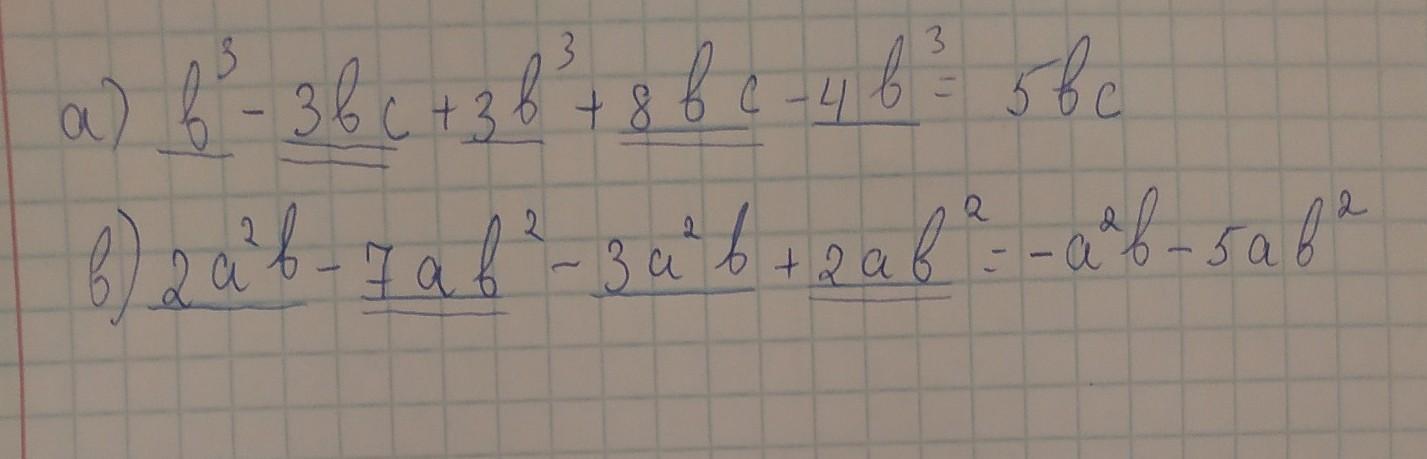 а) b³ - 3bc + 3b³ + 8bc - 4b³ = 5bc
в) 2a²b - 7ab² - 3a²b + 2ab² = -a²b - 5ab²